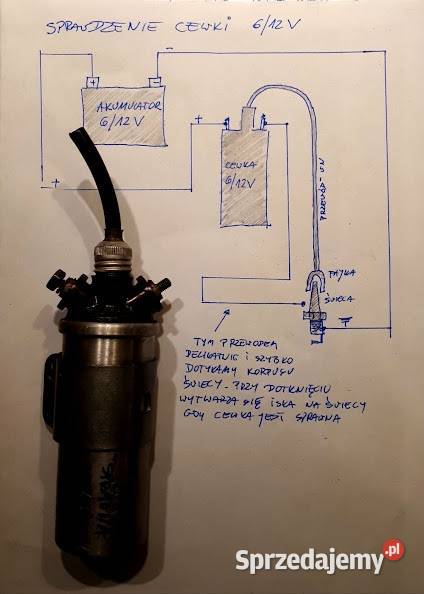 SPRAWDZENIE CEWKI 6/12V
AKUMULATOR
6/12V
+
-
-
+
+
CEWKA
6/12V
PRZEWÓD WN
FAJKA
ŚWIECA
TYM PRZEWODEM
DELIKATNIE I SZYBKO
DOTYKAMY KORPUSU
ŚWIECY. PRZY DOTKNIĘCIU
WYTWARZA SIĘ ISKA NA ŚWIECY
GDY CEWKA JEST SPRAWNA
Sprzedajemy.pl